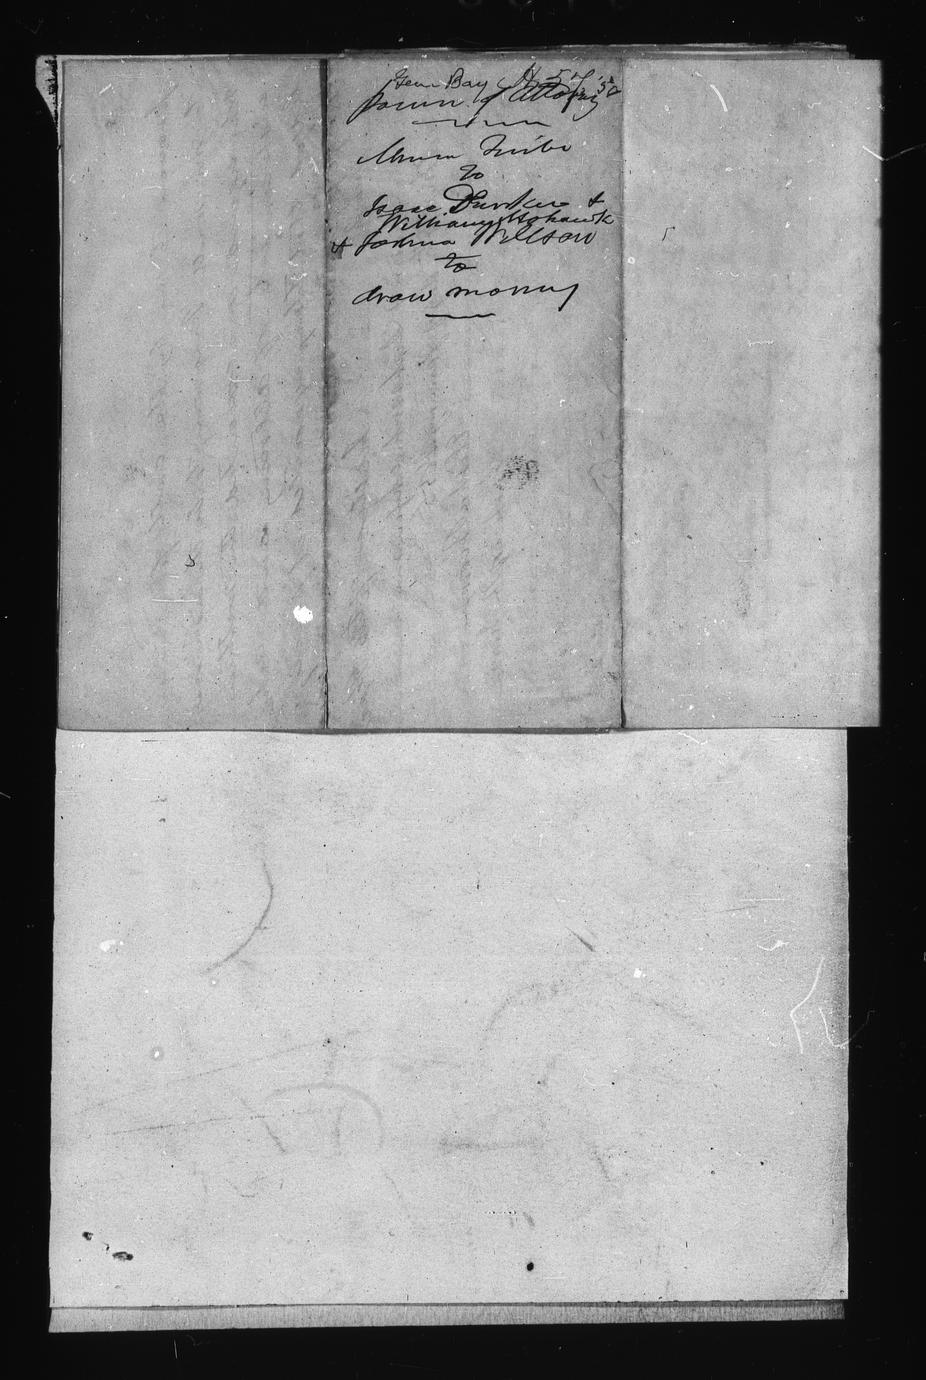 Green Bay H 57 '52
Power of Attorney
Tribe
to
Isaac Durkee &
William Mohawk
& Joshua Willson
to
draw money